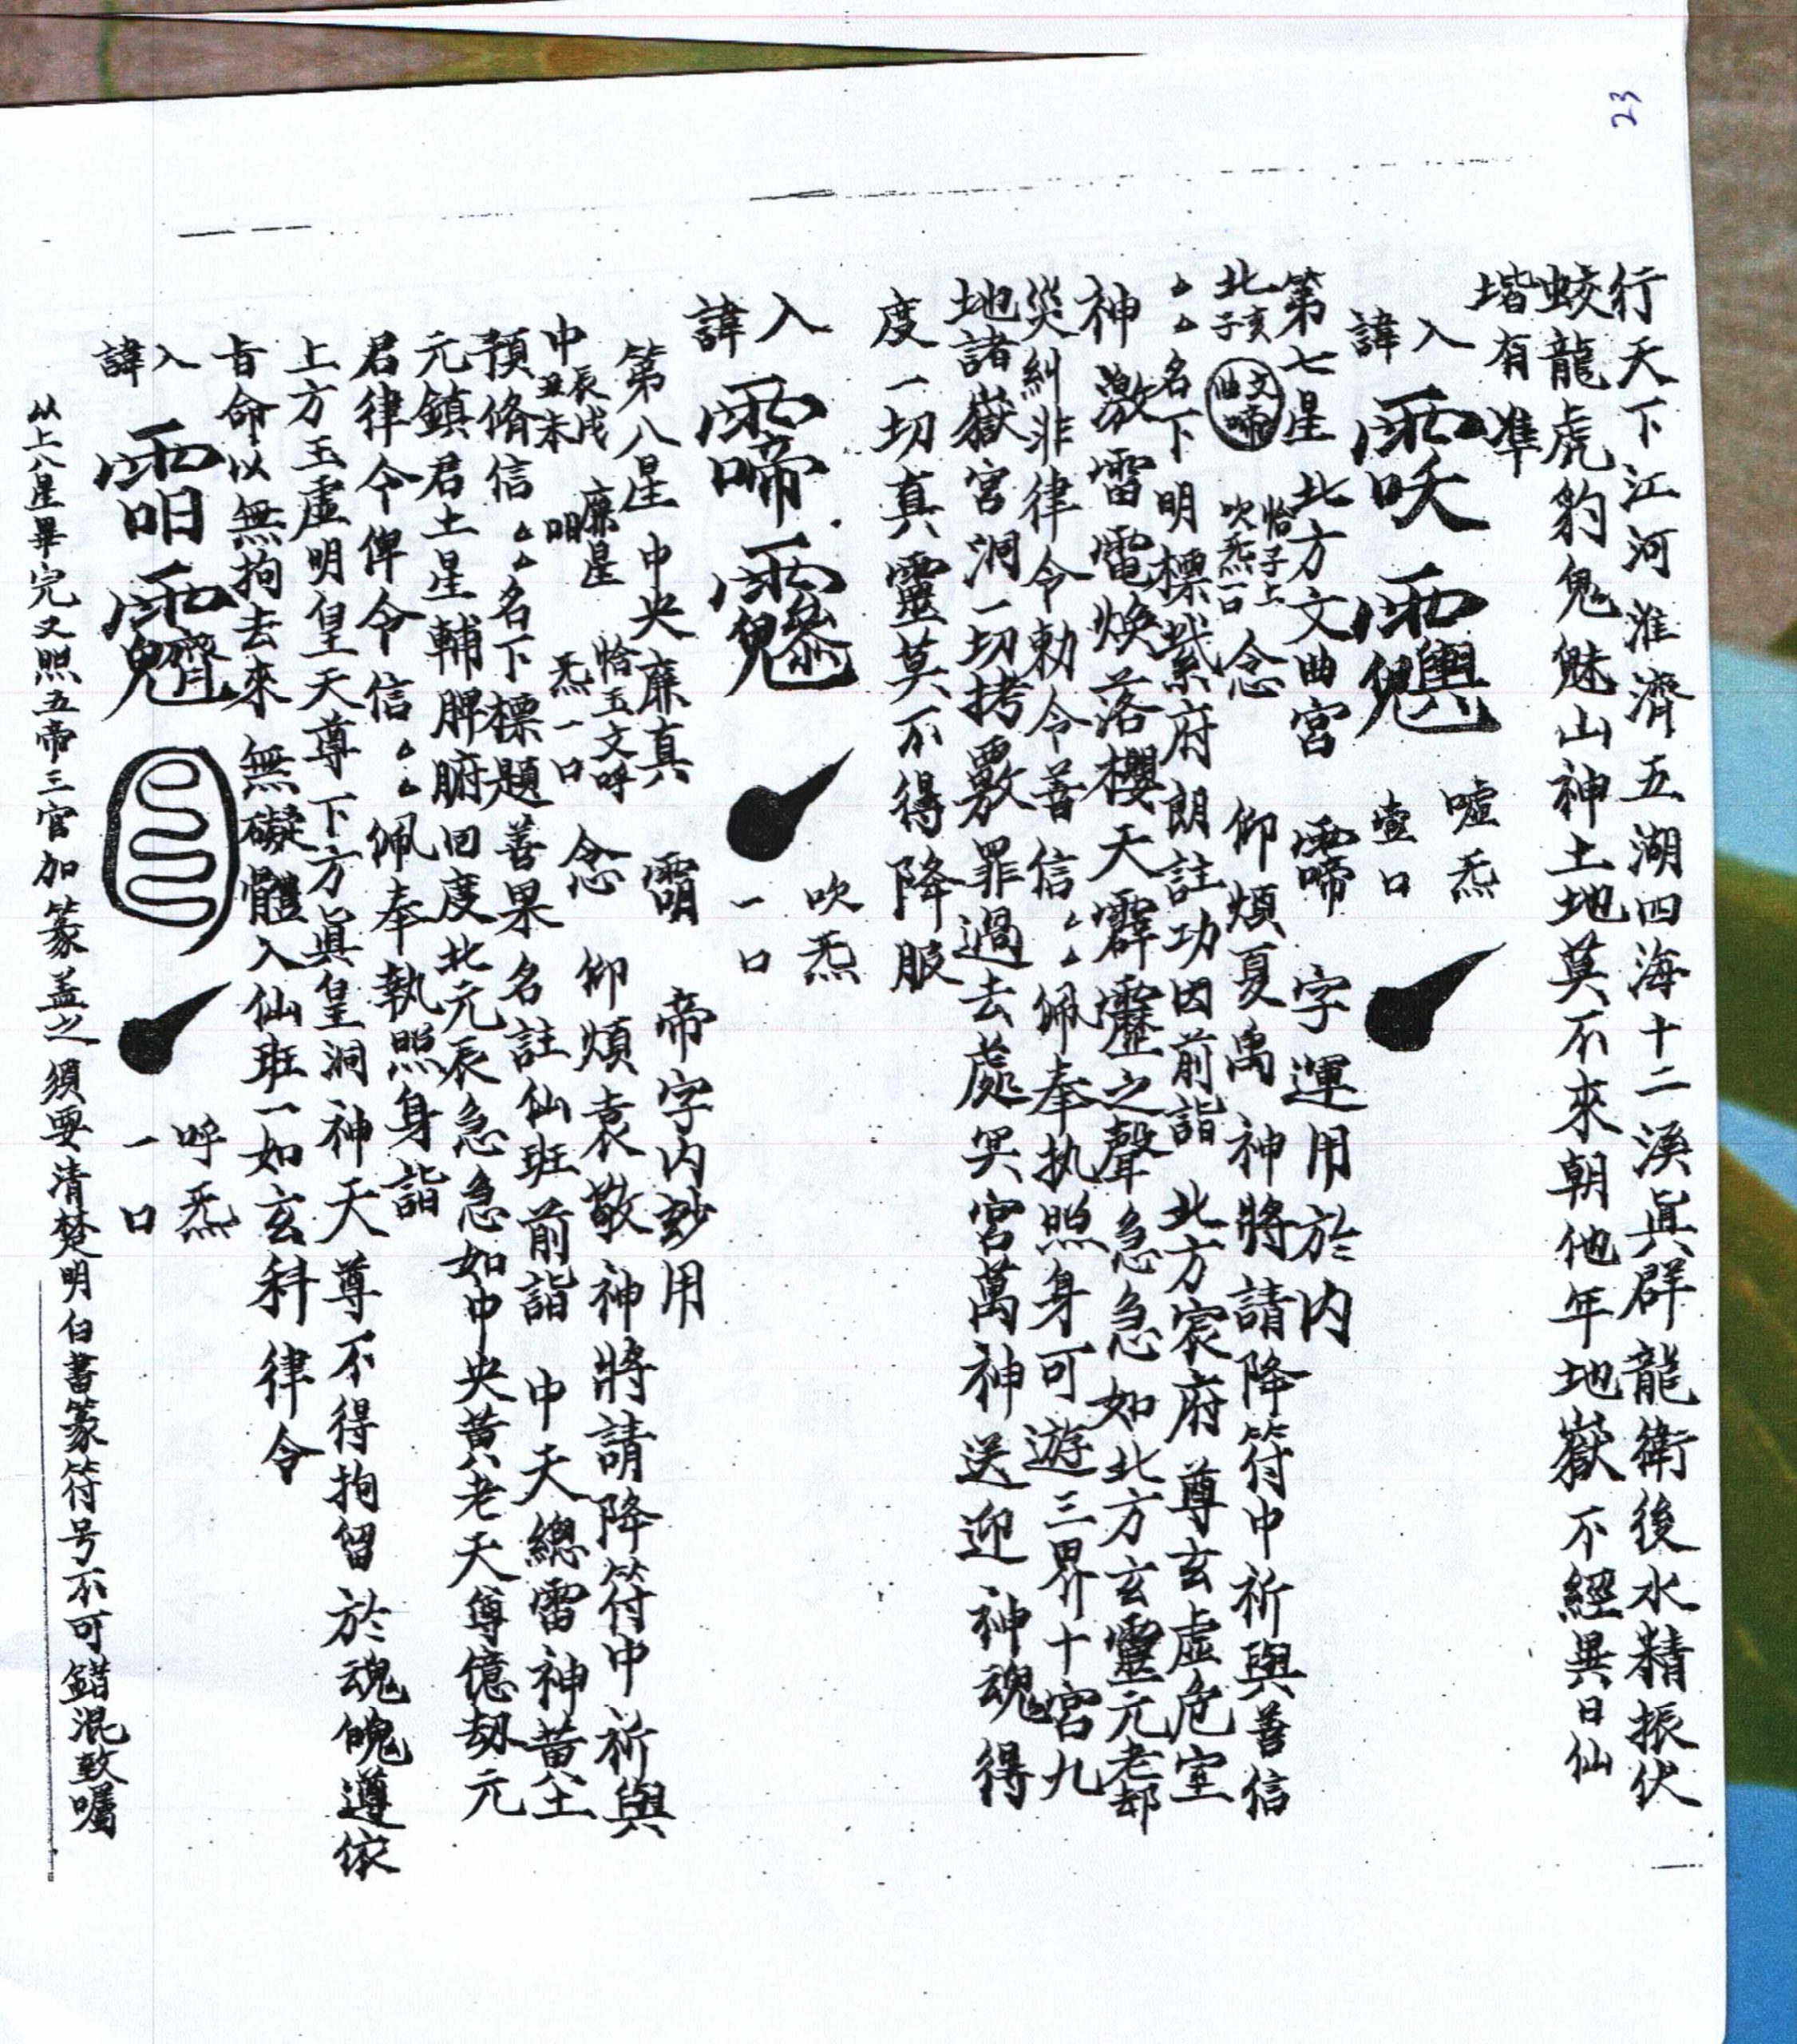 23
行天下江河淮濟五湖四海十二溪眞群龍衛後水精振伏
蛟龍虎豹鬼魅山神土地莫不來朝他年地嶽不經異日仙
堦有準
入諱 噓炁壹口
第七星 北方文曲宮 字運用於內
北亥子 文曲 恰子上吹炁一口 念 仰煩夏禹 神將請降符中祈與善信
厶厶名下明標紫府朗註功因前詣 北方宸府 尊玄虛危室
神激雷電煥落櫻天霹靂之聲急急如北方玄靈元老却
災糾非律令勅令善信厶厶佩奉执照身可遊三界十宮九
地諸嶽宮洞一切拷覈罪過去處冥官萬神送迎 神魂得
度一切真靈莫不得降服
入諱 吹炁一口
第八星中央廉真 帝字内玅用
中辰戌丑未 廉星 恰玉文呼炁一口 念 仰煩袁敬 神將請降符中祈與
預脩信厶厶名下標題善果名註仙班前詣 中天總雷神黃土
元鎮君土星輔脾腑回度北元辰急急如中央黃老天尊億劫元
君律令俾令信厶厶佩奉執照身詣
上方玉虛明皇天尊下方眞皇洞神天尊不得拘留於魂魄遵依
旨命以無拘去來無礙體入仙班一如玄科律令
入諱 呼炁一口
以上八星畢完又照五帝三官加篆盖之須要清楚明白書篆符号不可錯混致囑